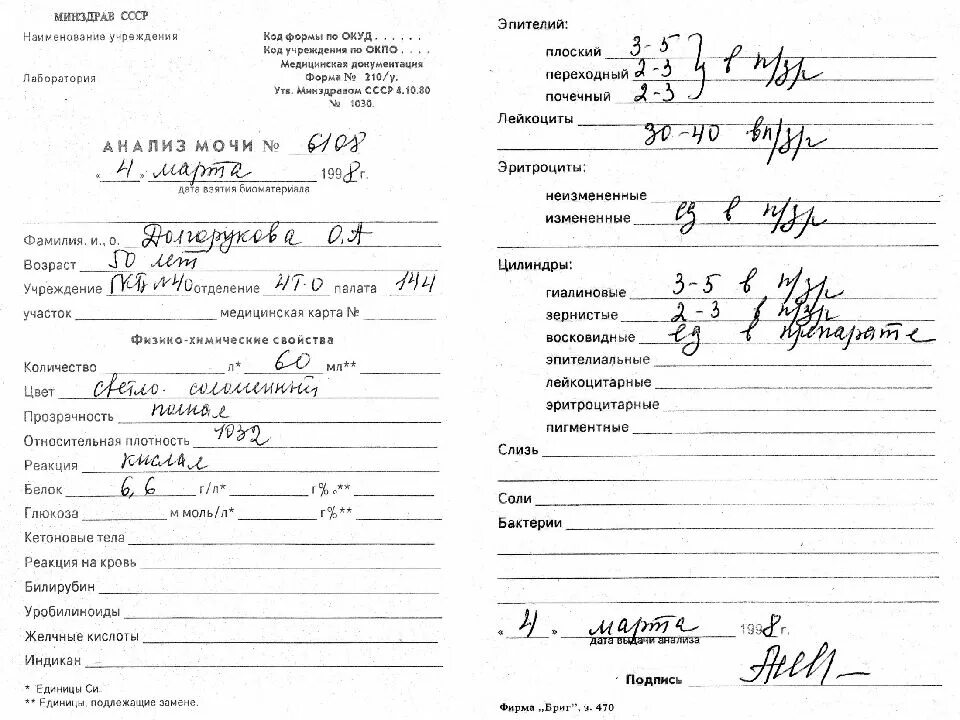 МИНЗДРАВ СССР
Наименование учреждения
Код формы по ОКУД . . . . . .
Код учреждения по ОКПО . . . . .
Медицинская документация
Лаборатория
Форма № 210/у.
Утв. Минздравом СССР 4.10.80
№ 1030.
АНАЛИЗ МОЧИ № 6108
„ 4 „ марта 1998г.
дата взятия биоматериала
Фамилия. и., о. Долгорукова О.А
Возраст 50 лет
Учреждение ГКБ №40 отделение 4Т.О палата 144
участок медицинская карта №
Физико-химические свойства
Количество л* 60 мл**
Цвет светло-соломенный
Прозрачность полная
Относительная плотность 1032
Реакция кислая
Белок 6,6 г/л* г%.**
Глюкоза м моль/л* г%**
Кетоновые тела
Реакция на кровь
Билирубин
Уробилиноиды
Желчные кислоты
Индикан
* Единицы Си.
** Единицы, подлежащие замене.
Эпителий:
плоский 3-5
переходный 2-3 } в п/зр
почечный 2-3
Лейкоциты
30-40 в п/зр
Эритроциты:
неизмененные
измененные ед в п/зр
Цилиндры:
гиалиновые 3-5 в п/зр
зернистые 2-3 в п/зр
восковидные ед в препарате
эпителиальные
лейкоцитарные
эритроцитарные
пигментные
Слизь
Соли
Бактерии
„ 4 „ марта 1998г.
дата выдачи анализа
Подпись
Фирма „Бриг", з. 470